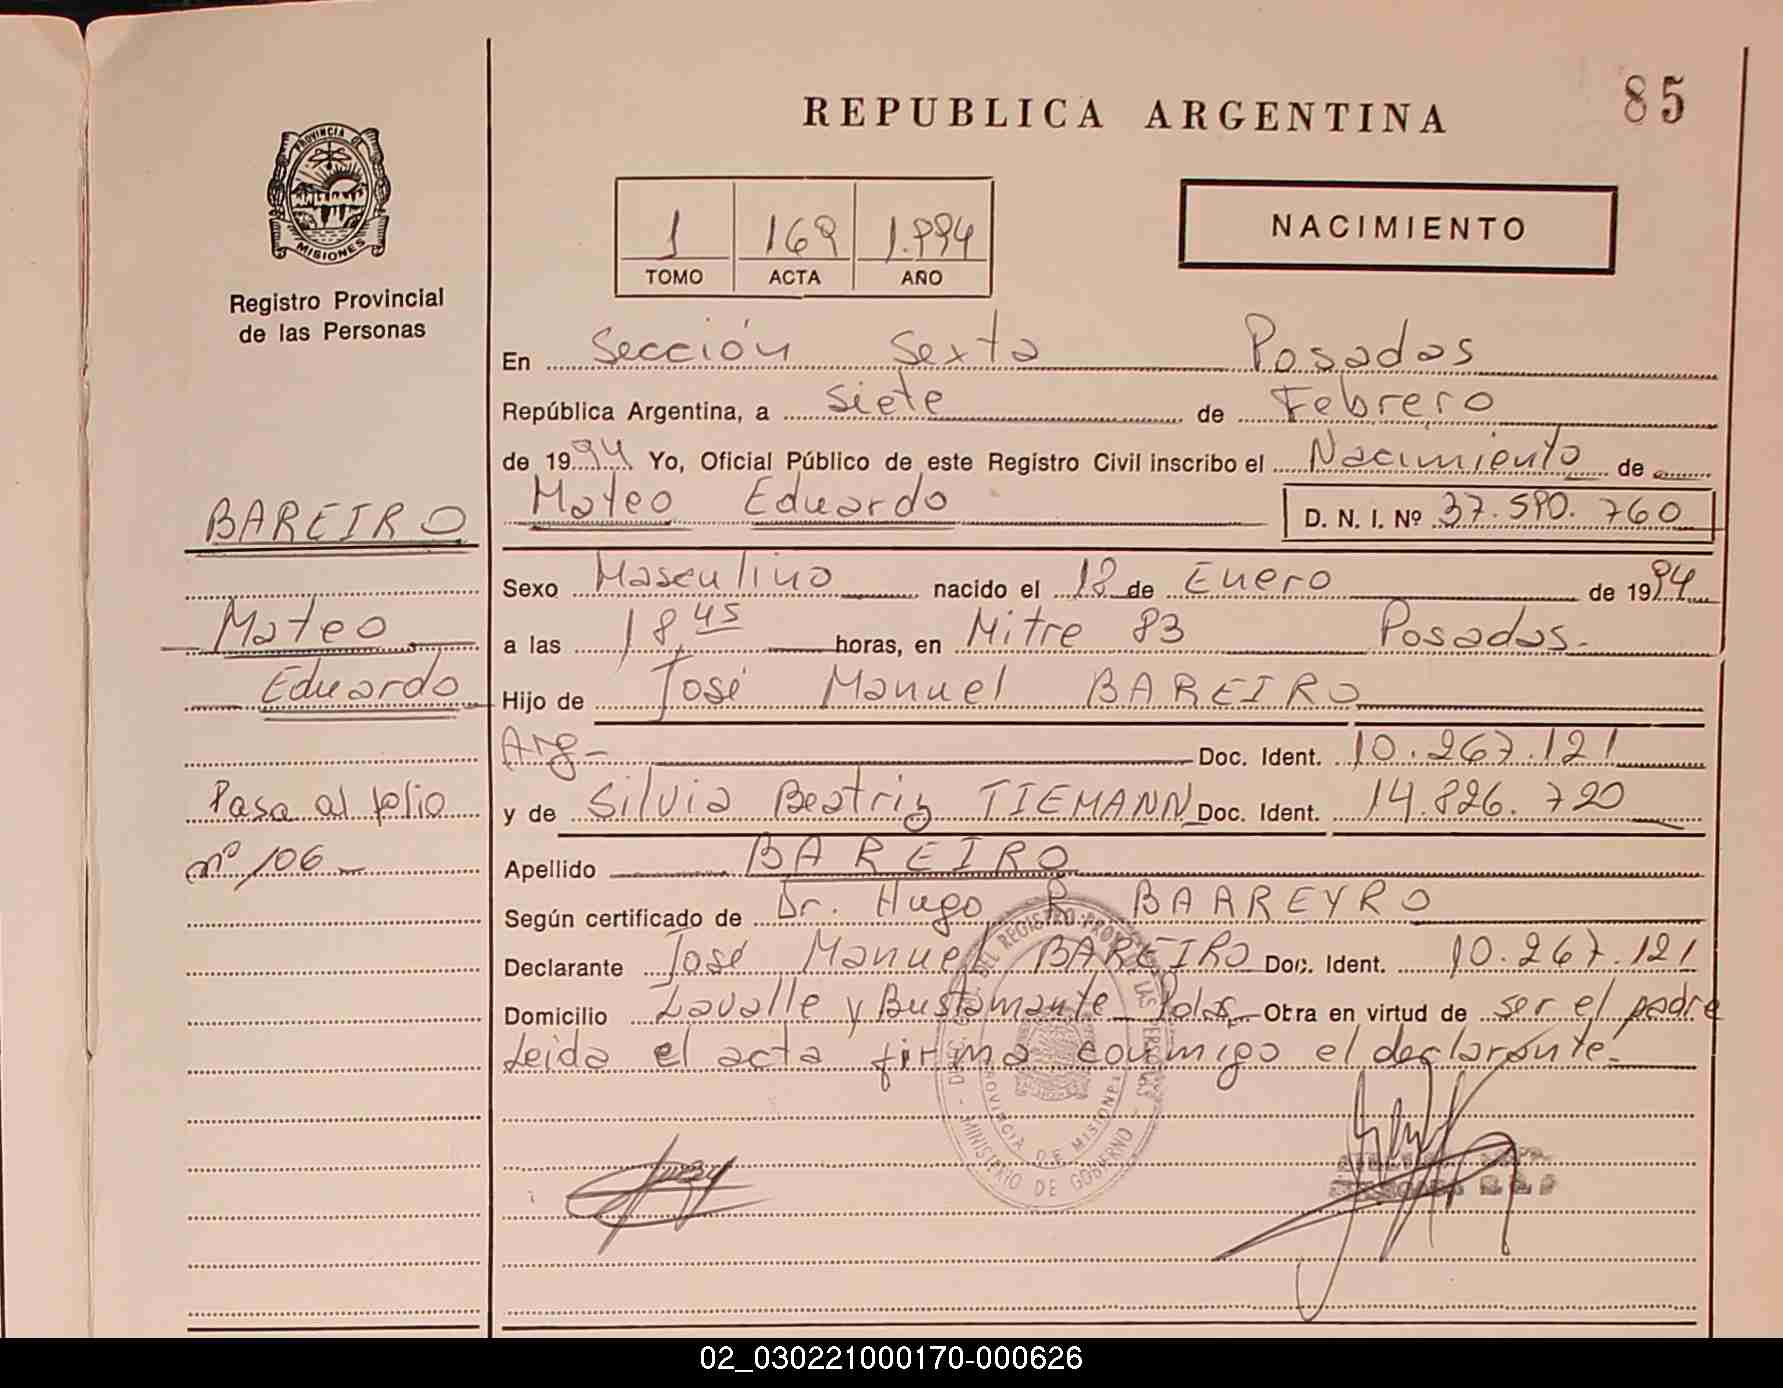 85
REPUBLICA ARGENTINA
PROVINCIA DE
MISIONES
Registro Provincial
de las Personas
1 169 1.994
TOMO ACTA AÑO
NACIMIENTO
En Sección Sexta Posadas
República Argentina, a siete de Febrero
de 1994 Yo, Oficial Público de este Registro Civil inscribo el Nacimiento de
Mateo Eduardo D. N. I. Nº 37.590.760
BAREIRO
Mateo
Eduardo
Pasa al folio
nº 106
Sexo Masculino nacido el 18 de Enero de 1994
a las 18,45 horas, en Mitre 83 Posadas.-
Hijo de José Manuel BAREIRO
Arg- Doc. Ident. 10.267.121
y de Silvia Beatriz TIEMANN Doc. Ident. 14.826.720
Apellido BAREIRO
Según certificado de Dr. Hugo R BAAREYRO
Declarante José Manuel BAREIRO Doc. Ident. 10.267.121
Domicilio Lavalle y Bustamante Pdas. Obra en virtud de ser el padre
Leida el acta firma conmigo el declarante.-
DEL REGISTRO PROV. DE LAS PERSONAS
MINISTERIO DE GOBERNO
PROVINCIA DE MISIONES
02_030221000170-000626